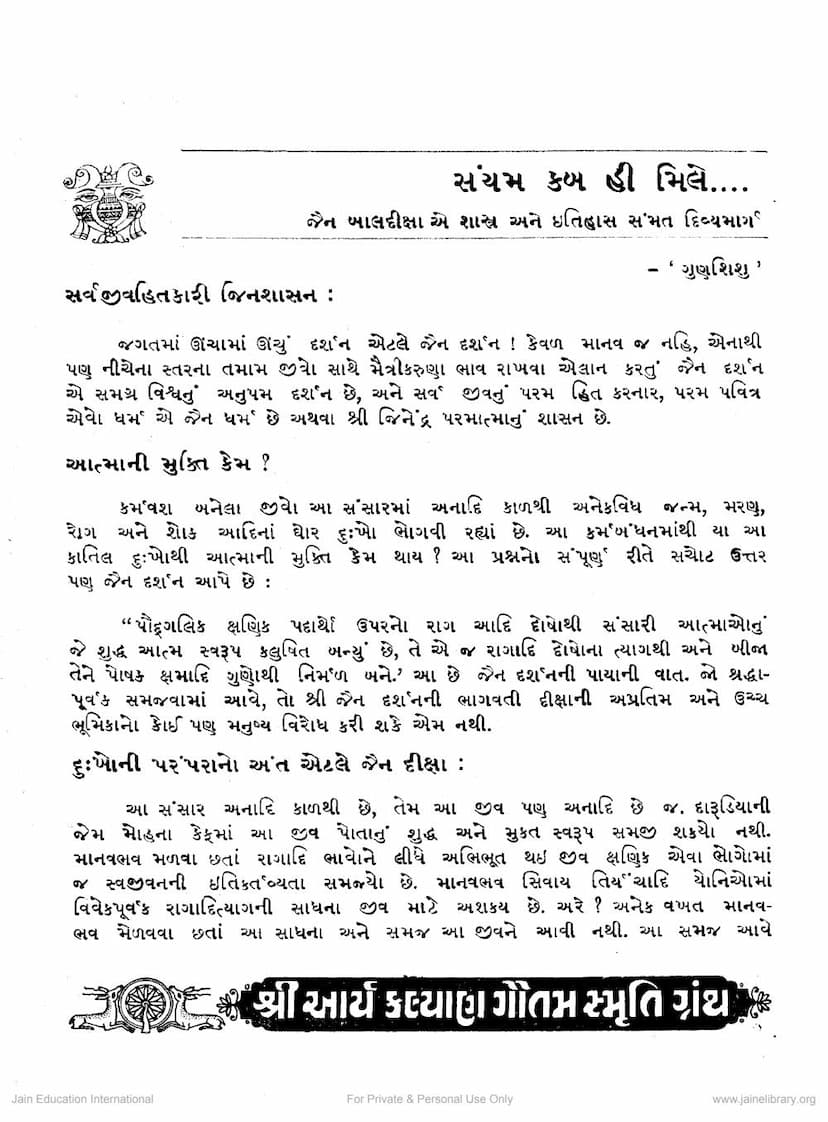 સંયમ કબ હી મિલે....
જૈન બાલદીક્ષા એ શાસ્ત્ર અને ઇતિહાસ સંમત દિવ્યમાર્ગ
– ‘ ગુણશિશુ ’
સર્વજીવહિતકારી જિનશાસન :
જગતમાં ઊંચામાં ઊંચું દર્શન એટલે જૈન દર્શન ! કેવળ માનવ જ નહિ, એનાથી
પણ નીચેના સ્તરના તમામ જીવો સાથે મૈત્રીકરુણા ભાવ રાખવા એલાન કરતું જૈન દર્શન
એ સમગ્ર વિશ્વનું અનુપમ દર્શન છે, અને સર્વ જીવનું પરમ હિત કરનાર, પરમ પવિત્ર
એવો ધર્મ એ જૈન ધર્મ છે અથવા શ્રી જિનેંદ્ર પરમાત્માનું શાસન છે.
આત્માની મુક્તિ કેમ ?
કર્મવશ બનેલા જીવો આ સંસારમાં અનાદિ કાળથી અનેકવિધ જન્મ, મરણ,
રોગ અને શોક આદિનાં ઘોર દુઃખો ભોગવી રહ્યાં છે. આ કર્મબંધનમાંથી યા આ
કાતિલ દુઃખોથી આત્માની મુક્તિ કેમ થાય ? આ પ્રશ્નનો સંપૂર્ણ રીતે સચોટ ઉત્તર
પણ જૈન દર્શન આપે છે :
“પૌદ્ગલિક ક્ષણિક પદાર્થો ઉપરનો રાગ આદિ દોષોથી સંસારી આત્માઓનું
જે શુદ્ધ આત્મ સ્વરૂપ કલુષિત બન્યું છે, તે એ જ રાગાદિ દોષોના ત્યાગથી અને બીજા
તેને પોષક ક્ષમાદિ ગુણોથી નિર્મળ બને.’ આ છે જૈન દર્શનની પાયાની વાત. જો શ્રદ્ધા-
પૂર્વક સમજવામાં આવે, તો શ્રી જૈન દર્શનની ભાગવતી દીક્ષાની અપ્રતિમ અને ઉચ્ચ
ભૂમિકાનો કોઈ પણ મનુષ્ય વિરોધ કરી શકે એમ નથી.
દુઃખોની પરંપરાનો અંત એટલે જૈન દીક્ષા :
આ સંસાર અનાદિ કાળથી છે, તેમ આ જીવ પણ અનાદિ છે જ. દારૂડિયાની
જેમ મોહના કેફમાં આ જીવ પોતાનું શુદ્ધ અને મુકત સ્વરૂપ સમજી શકયો નથી.
માનવભવ મળવા છતાં રાગાદિ ભાવોને લીધે અભિભૂત થઇ જીવ ક્ષણિક એવા ભોગોમાં
જ સ્વજીવનની ઇતિકર્તવ્યતા સમજ્યો છે. માનવભવ સિવાય તિર્યંચાદિ યોનિઓમાં
વિવેકપૂર્વક રાગાદિત્યાગની સાધના જીવ માટે અશકય છે. અરે ? અનેક વખત માનવ-
ભવ મેળવવા છતાં આ સાધના અને સમજ આ જીવને આવી નથી. આ સમજ આવે
શ્રી આર્ય કલ્યાણ ગૌતમ સ્મૃતિ ગ્રંથ
Jain Education International
For Private & Personal Use Only
www.jainelibrary.org